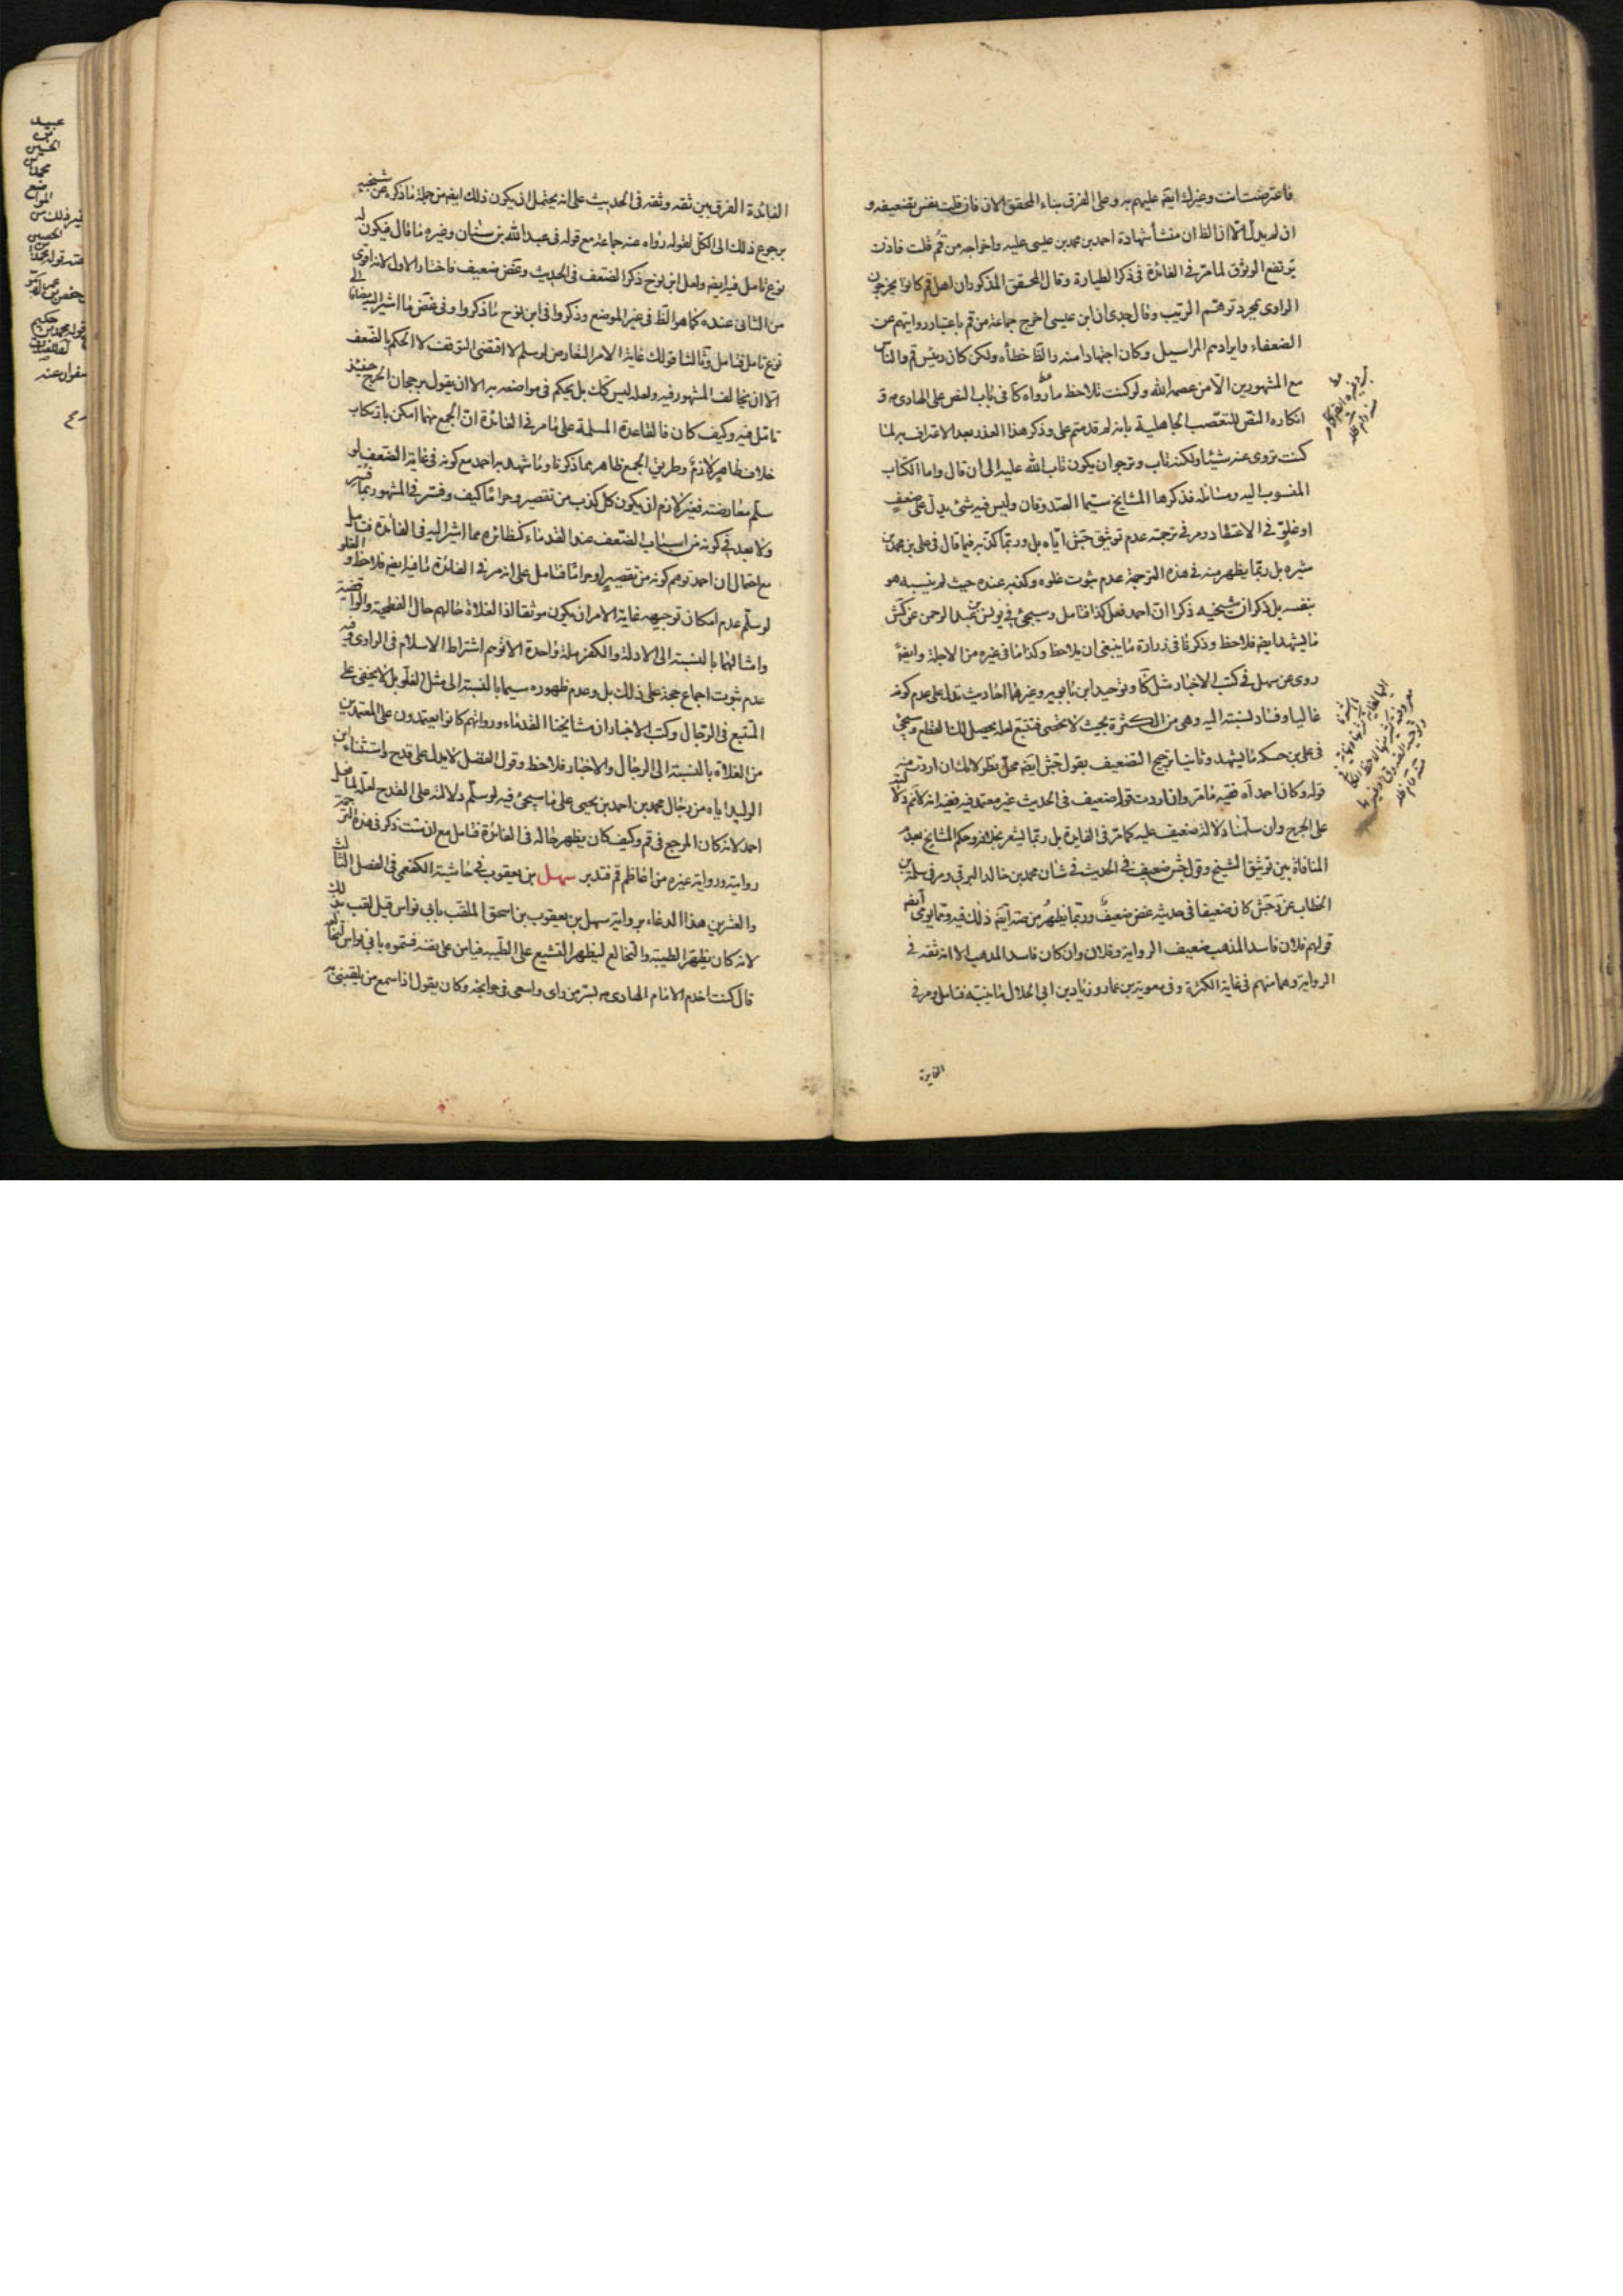 فاعترضت انت وغيرك ايضه عليهم به وعلى الفرق بناء المحقق الان فان قلت بغض تضعيفه و
ان لم يدل الا ان الظ ان منشأ شهادة احمد بن محمد بن عيسى عليه واخراجه من قم قلت فاذن
يرتفع الوثوق لما مر في الفائدة في ذكر الطيارة وقال المحقق المذكور ان اهل قم كانوا يخرجون
الراوى بمجرد توهم الريب وقال جدى ان ابن عيسى اخرج جماعة من قم باعتبار روايتهم عن
الضعفاء وايرادهم المراسيل وكان اجتهادا منه والظ خطأه ولكن كان رئيس قم والناس
مع المشهورين الا من عصمه الله ولو كنت تلاحظ ما رواه كا في باب النص على الهادى ع و
انكاره النص للتعصب الجاهلية بانه لم قدمتم على وذكر هذا العذر بعد الاعتراف به لما
كنت تروى عنه شيئا ولكنه تاب ونرجو ان يكون تاب الله عليه الى ان قال واما الكتاب
المنسوب اليه ومسائله فذكرها المشايخ سيما الصدوقان وليس فيه شئ يدل على ضعف
او غلو في الاعتقاد ومر في ترجمته عدم توثيق جش اياه بل وربما كذبه فيما قال في على بن محمد بن
شيره بل ربما يظهر منه في هذه الترجمة عدم ثبوت غلوه وكذبه عنده حيث لم ينسبه هو
بنفسه بل ذكر ان شيخيه ذكرا ان احمد فعل كذا فتامل وسيجئ في يونس بن عبد الرحمن عن كش
ما يشهد ايضه فلاحظ وذكرنا في زرارة ما ينبغى ان يلاحظ وكذا ما في غيره من الاجلة وايضه
روى عن سهل في كتب الاخبار مثل كا وتوحيد ابن بابويه وغيرهما احاديث تدل على عدم كونه
غاليا وفساد نسبته اليه وهى من الكثرة بحيث لا تحصى فتتبع لعله يحصل لك القطع وسيجئ
في على بن حسكه ما يشهد وثانيا ترجيح التضعيف بقول جش ايضه محل نظر لانك ان اردت منه
قوله وكان احمد اه ففيه ما مر وان اردت قوله ضعيف في الحديث غير معتمد فيه ففيه انه لا نم دلالته
على الجرح وان سلمنا دلالة ضعيف عليه كما مر في الفايدة بل ربما يشعر بخلافه وحكم المشايخ بعدم
المنافاة بين توثيق الشيخ وقول جش ضعيف في الحديث في شان محمد بن خالد البرقي ومر في سلمة بن
الخطاب عن جش كان ضعيفا في حديثه غض ضعيف وربما يظهر من صه ايضه ذلك فيه وربما يومى ايضه
قولهم فلان فاسد المذهب ضعيف الرواية وفلان وان كان فاسد المذهب الا انه ثقة في
الرواية وهما منهم في غاية الكثرة وفي معوية بن عمار وزياد بن ابى الحلال ما ينبه فتامل ومر في
الفايدة
الفائدة الفرق بين ثقه وثقه في الحديث على انه يحتمل ان يكون ذلك ايضه من جملة ما ذكره عن شيخيه
برجوع ذلك الى الكل لقوله رواه عنه جماعة مع قوله في عبد الله بن سنان وغيره ما قال فيكون له
نوع تامل فيه ايضه ولعل ابن نوح ذكر الضعف في الحديث وغض ضعيف فاختار الاول لانه اقوى
من الثانى عنده كما هو الظ في غير الموضع وذكروا في ابن نوح ما ذكروا وفي غض ما اشير اليه مضافا الى
نوع تامل فتامل وثالثا قولك غاية الامر التعارض لو سلم لاقتضى التوقف لا الحكم بالضعف
الا ان يخالف المشهور فيه ولعله ليس كك بل يحكم في مواضعه به الا ان يقول برجحان الجرح حينئذ
تامل فيه وكيف كان فالقاعدة المسلمة على ما مر في الفائدة ان الجمع مهما امكن بارتكاب
خلاف ظاهر لازم وطريق الجمع ظاهر بما ذكرنا وما شهد به احمد مع كونه في غاية الضعف لو
سلم معارضته فغير لازم ان يكون كل كذب من تقصير وحراما كيف وفسر في المشهور بما فسر
ولا بعد في كونه من اسباب الضعف عند القدماء كنظائره مما اشير اليه في الفائدة فتامل
مع احتمال ان احمد توهم كونه من تقصير او حراما فتامل على انه مر في الفائدة ما فيه ايضه فلاحظ و الغلو
لو سلم عدم امكان توجيهه غاية الامر ان يكون موثقا اذ الغلاة حالهم حال الفطحية والواقفية
وامثالهما بالنسبة الى الادلة والكفر ملة واحدة الا توهم اشتراط الاسلام في الراوى وفيه
عدم ثبوت اجماع حجة على ذلك بل وعدم ظهوره سيما بالنسبة الى مثل الغلو بل لا يخفى على
المتتبع في الرجال وكتب الاخبار ان مشايخنا القدماء ورواتهم كانوا يعتمدون على المعتمدين
من الغلاة بالنسبة الى الرجال والاخبار فلاحظ وقول الفضل لا يدل على قدح واستثناء ابن
الوليد اياه من رجال محمد بن احمد بن يحيى على ما سيجئ فيه لو سلم دلالته على القدح لعله لما فعل
احمد لانه كان المرجع في قم وكيف كان يظهر حاله في الفائدة فتامل مع ان شئت ذكر في هذه الترجمة
روايته ورواية غيره من اعاظم قم فتدبر سهل بن يعقوب في حاشية الكفعمى في الفصل الثالث
والعشرين هذا الدعاء برواية سهل بن يعقوب بن اسحق الملقب بابى نواس قيل لقب بذلك
لانه كان يظهر الطيبة والتخالع ليظهر التشيع على الطيبة فيامن على نفسه فسموه بابى نواس لتخالعه
قال كنت اخدم الامام الهادى ع بسر من راى واسعى في حوائجه وكان يقول اذا سمع من يلقبنى